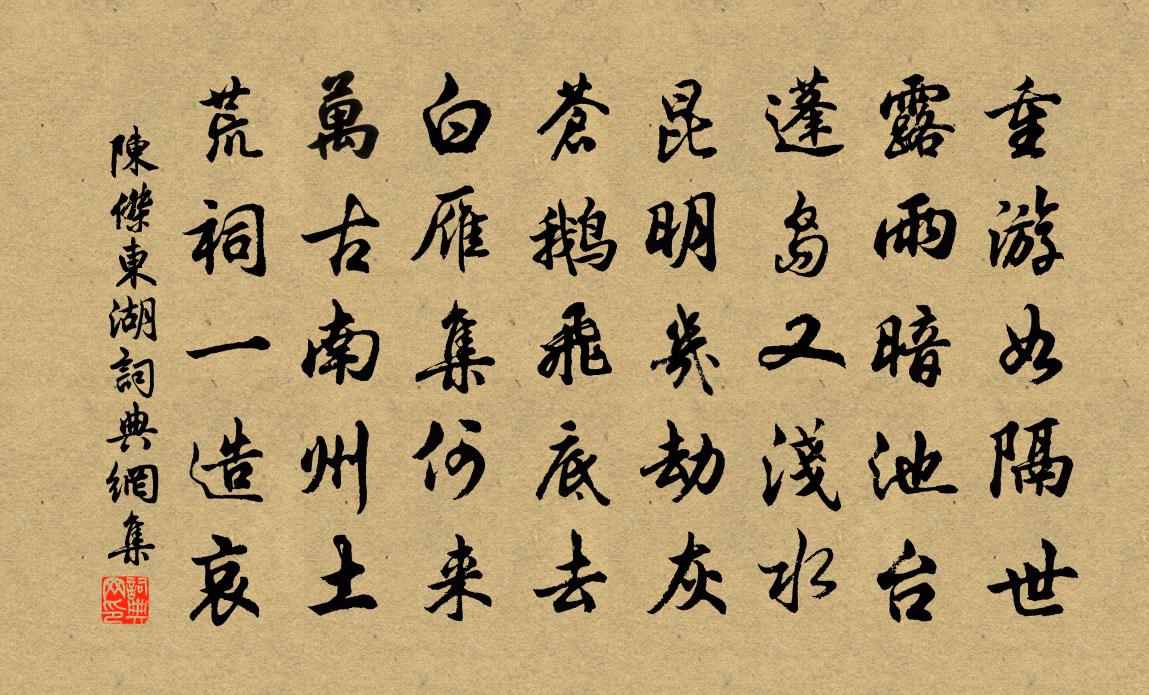 重游如隔世
露雨暗池台
蓬岛又淺水
昆明幾劫灰
蒼鵝飛底去
白雁集何来
萬古南州土
荒祠一造哀
陳傑東湖詞典網集
詞典网印